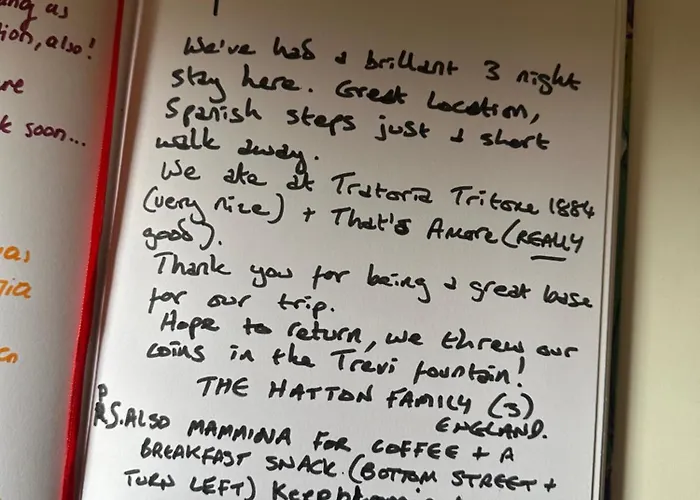 ng as
tion, also!
re
k soon...
as
ia
en
We've had a brillant 3 night
stay here. Great Location,
Spanish steps just a short
walk away.
We ate at Tratoria Tritone 1884
(very nice) + That's Amore (REALLY
good).
Thank you for being a great base
for our trip.
Hope to return, we threw our
coins in the Trevi fountain!
THE HATTON FAMILY (3)
ENGLAND.
PS. ALSO MAMMINA FOR COFFEE + A
BREAKFAST SNACK. (BOTTOM STREET +
TURN LEFT)